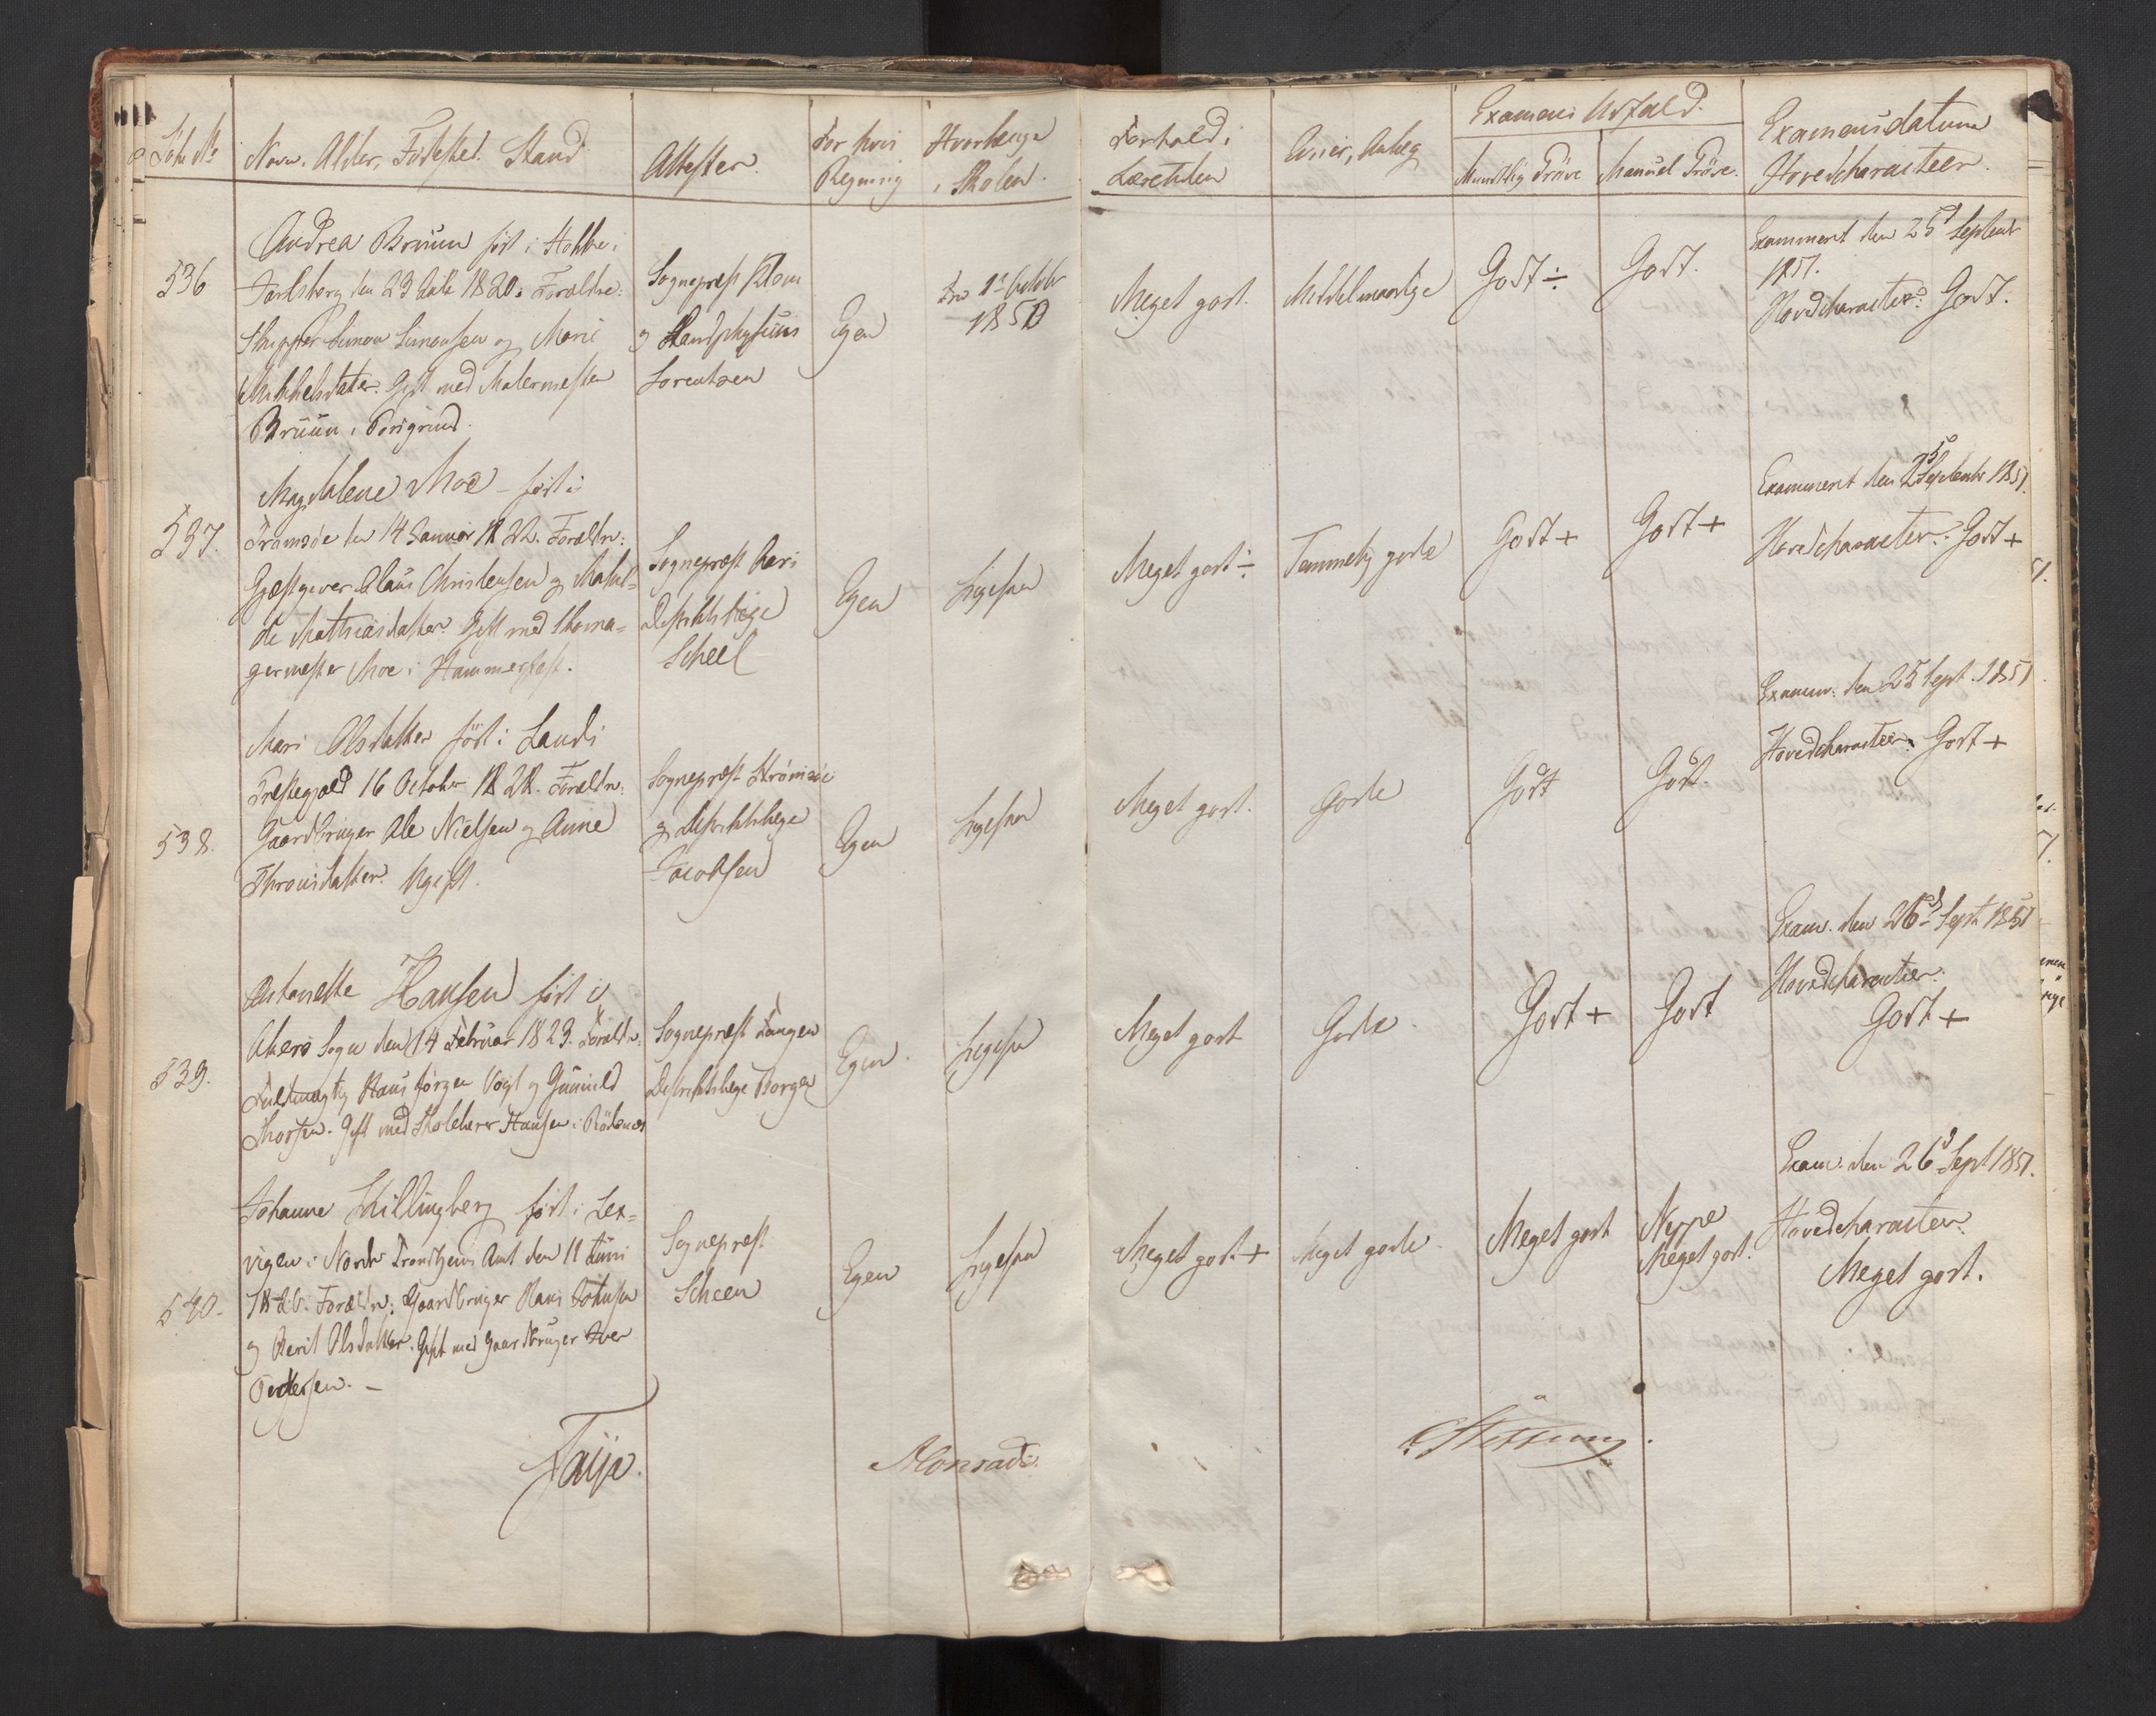 Navn, Alder, Födested. Stand
Attester.
For hvis
Regning
Hvorlænge
i Skolen.
Forhold i
Læretiden
Evner, Anlæg
Examens Udfald.
Mundtlig Pröve
Manuel Pröve.
Examensdatum
Hovedcharacteer.
536
Andrea Bruun født i
Jarlsberg den 23 1820. Forældre:
Simon Simonsen og Marie
Mikkelsdatter. Gift med Malermester
Bruun i Porsgrund.
Sogneprest
og Landphysicus
Lorentzen
Egen
Fra 1ste October
1850
Meget godt.
Middelmaadige
Godt ÷
Godt.
Examineret den 25d Septembr
1851.
Hovedcharacter: Godt.
537.
Magdalene Moe - født i
Tromsøe den 14 Januar 1822. Forældre:
Gjæstgiver Claus Christensen og Mathil=
de Mathiasdatter. Gift med Skoma=
germester Moe i Hammerfest.
Sogneprest
Districtslæge
Scheel
Egen
Ligesaa
Meget godt ÷
Temmelig gode
Godt +
Godt +
Examineret den 25 Septembr 1851.
Hovedcharacter: Godt +
538.
Mari Olsdatter født i Lands
Præstegjæld 16 October 1828. Forældre:
Gaardbruger Ole Nielsen og Anne
Thronsdatter. Ugift.
Sogneprest Strömsöe
og Districtslæge
Jacobsen
Egen
Ligesaa
Meget godt.
Gode
Godt
Godt.
Examin. den 25 Sept. 1851
Hovedcharacteer: Godt +
539.
Antonette Hansen født i
Akers Sogn den 14 Februar 1823. Foreldre:
Fuldmægtig Hans Jørgen Vogt og Gunnild
Thorsen. Gift med Skolelærer Hansen i Rödenes
Sogneprest Tangen
Districtslæge Borgen
Egen.
Ligesaa
Meget godt
Gode.
Godt +
Godt
Exam. den 26d Septr 1851
Hovedcharacteer:
Godt +
540.
Johanne Skillingberg født i Lex=
vigen i Nordr Trondhjems Amt den 11 Juni
Forældre: Gaardbruger Hans Johnsen
og Berit Olsdatter. Gift med Gaardbruger Iver
Pedersen. -
Sogneprest
Scheen
Egen
Ligesaa
Meget godt +
Meget gode.
Meget godt
Neppe
Meget godt.
Exam. den 26d Sept 1851.
Hovedcharacter:
Meget godt.
Faye.
Monrad.